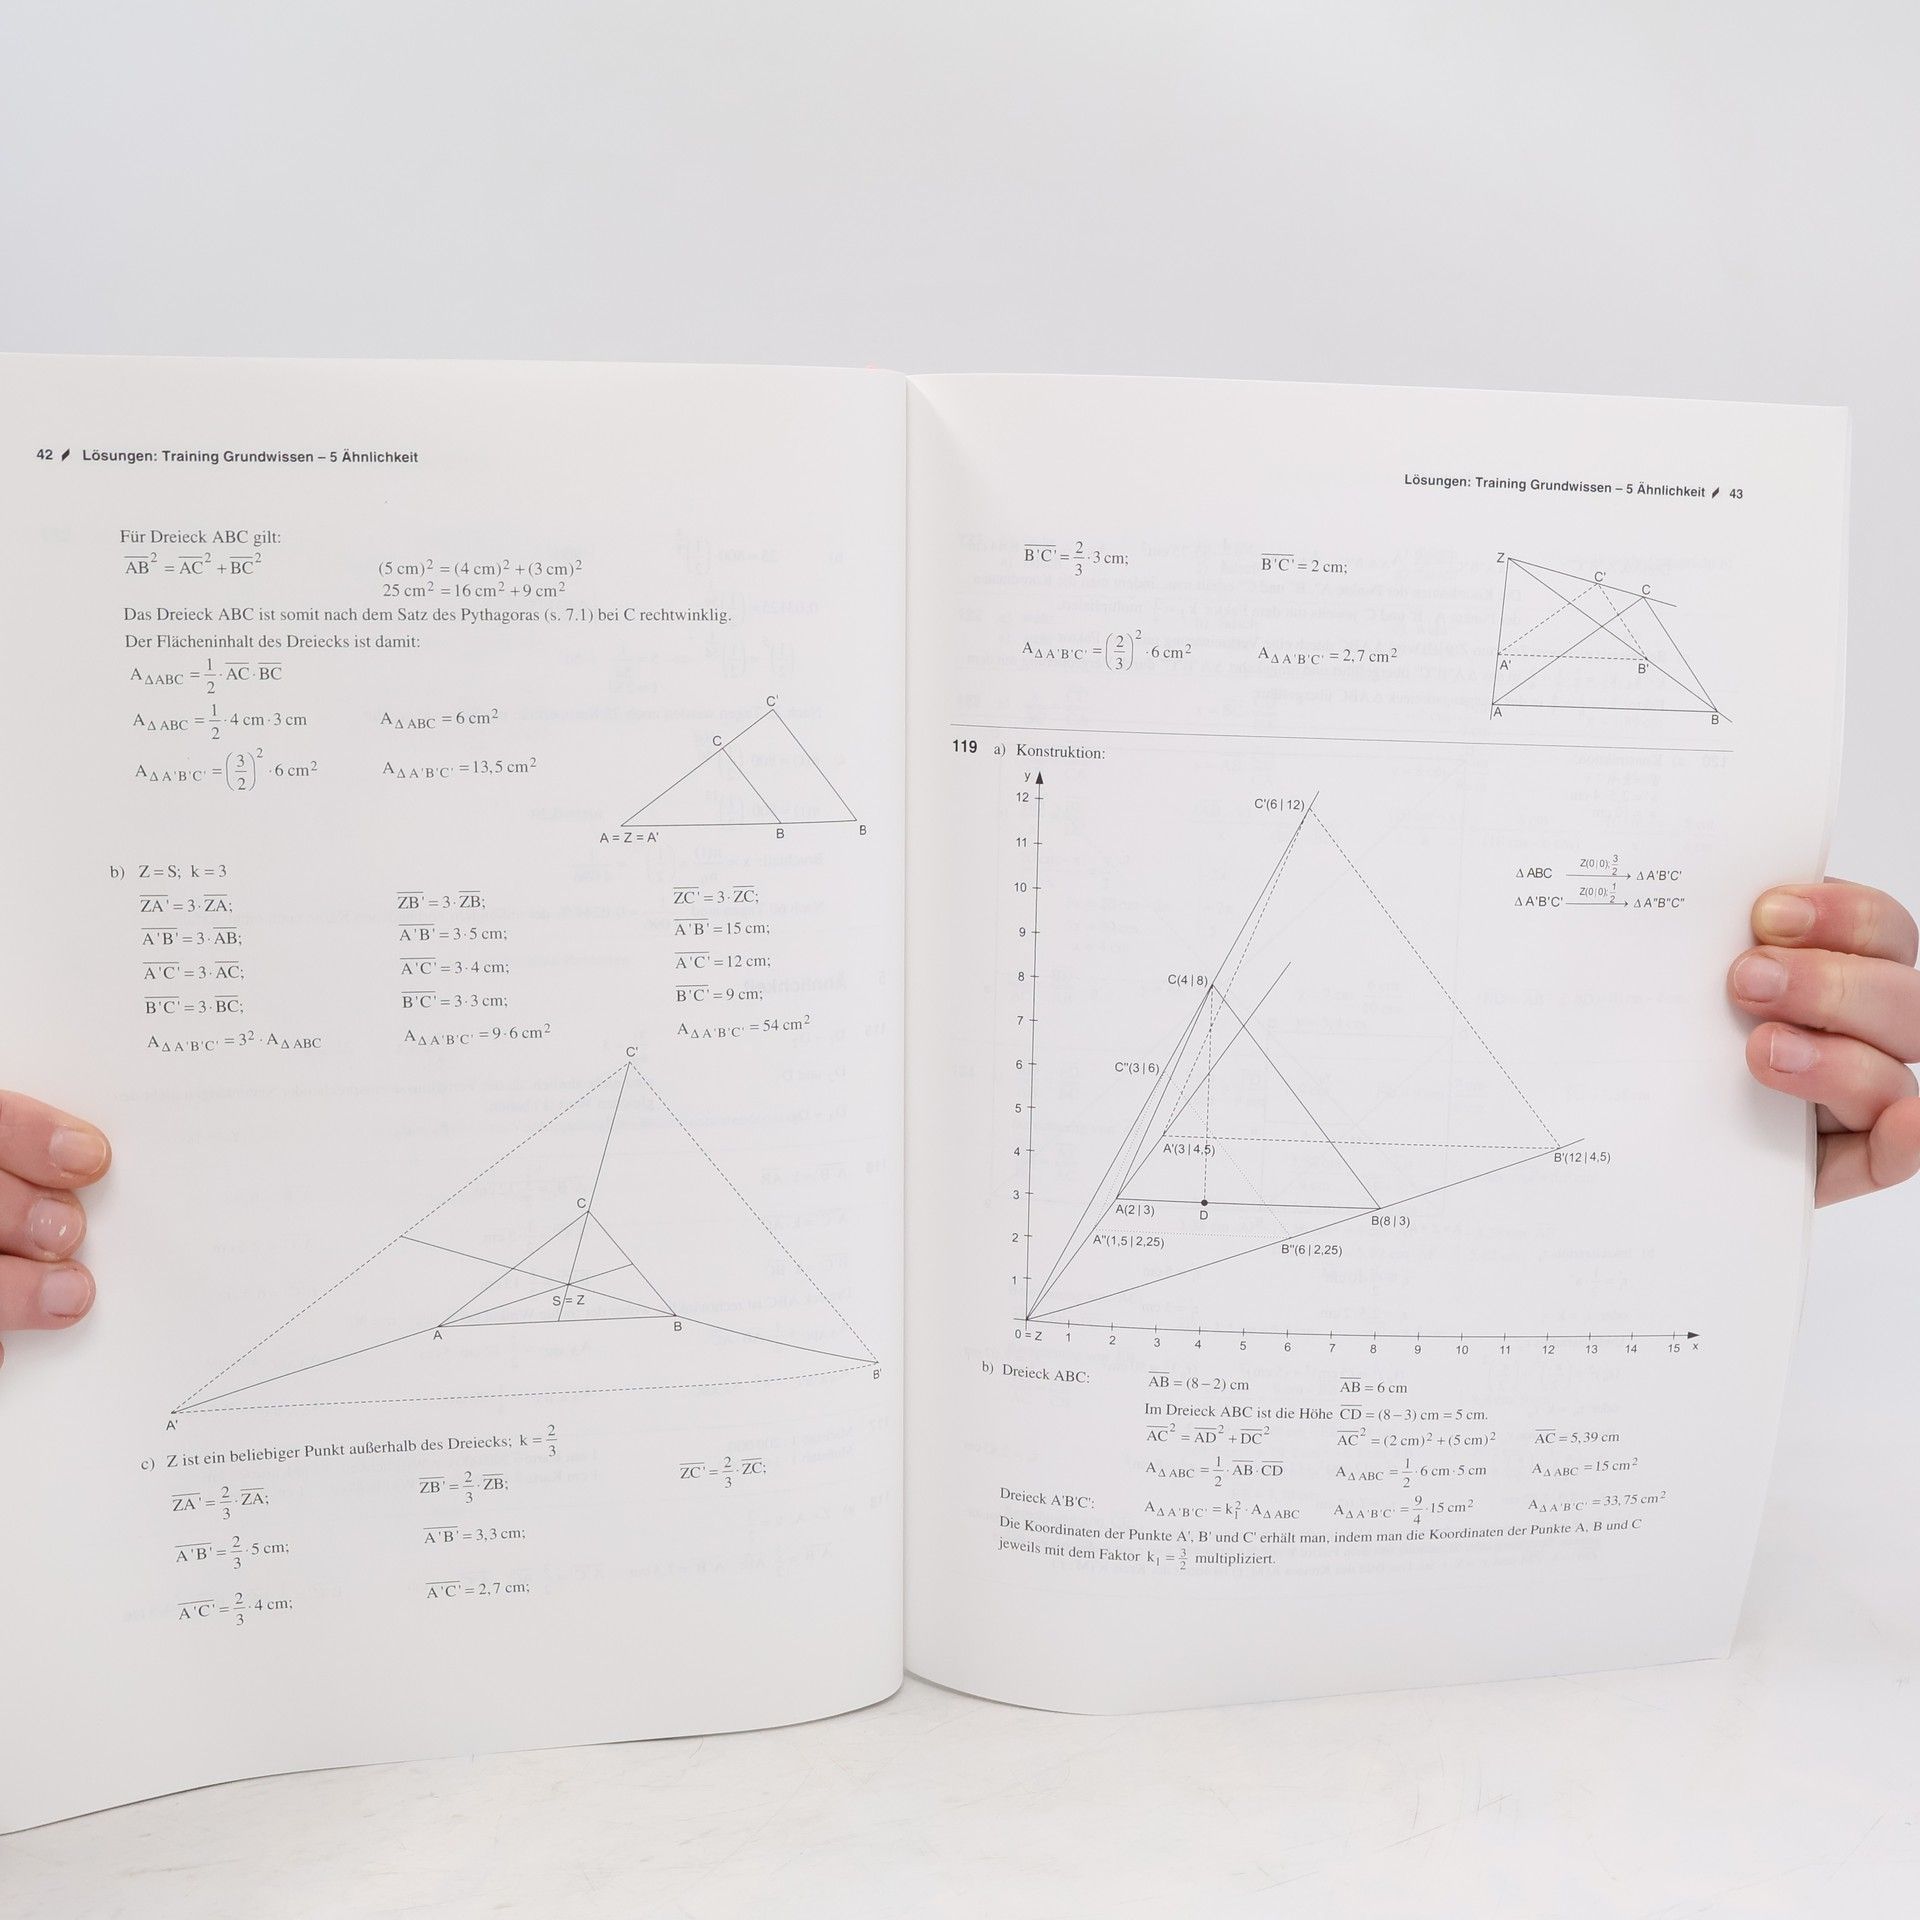 42 Lösungen: Training Grundwissen – 5 Ähnlichkeit
Für Dreieck ABC gilt:
AB² = AC² + BC² (5 cm)² = (4 cm)² + (3 cm)²
25 cm² = 16 cm² + 9 cm²
Das Dreieck ABC ist somit nach dem Satz des Pythagoras (s. 7.1) bei C rechtwinklig.
Der Flächeninhalt des Dreiecks ist damit:
A_Δ ABC = 1/2 · AC · BC
A_Δ ABC = 1/2 · 4 cm · 3 cm A_Δ ABC = 6 cm²
A_Δ A'B'C' = (3/2)² · 6 cm² A_Δ A'B'C' = 13,5 cm²
C'
C
A = Z = A' B B
b) Z = S; k = 3
ZA' = 3 · ZA; ZB' = 3 · ZB; ZC' = 3 · ZC;
A'B' = 3 · AB; A'B' = 3 · 5 cm; A'B' = 15 cm;
A'C' = 3 · AC; A'C' = 3 · 4 cm; A'C' = 12 cm;
B'C' = 3 · BC; B'C' = 3 · 3 cm; B'C' = 9 cm;
A_Δ A'B'C' = 3² · A_Δ ABC A_Δ A'B'C' = 9 · 6 cm² A_Δ A'B'C' = 54 cm²
C'
C
S = Z
A B
B'
A'
c) Z ist ein beliebiger Punkt außerhalb des Dreiecks; k = 2/3
ZA' = 2/3 · ZA; ZB' = 2/3 · ZB; ZC' = 2/3 · ZC;
A'B' = 2/3 · 5 cm; A'B' = 3,3 cm;
A'C' = 2/3 · 4 cm; A'C' = 2,7 cm;
Lösungen: Training Grundwissen – 5 Ähnlichkeit 43
B'C' = 2/3 · 3 cm; B'C' = 2 cm;
A_Δ A'B'C' = (2/3)² · 6 cm² A_Δ A'B'C' = 2,7 cm²
Z
C'
C
A' B'
A B
119 a) Konstruktion:
y
12
11
10
9
8
7
6
5
4
3
2
1
C'(6 | 12)
Δ ABC Z(0|0); 3/2 Δ A'B'C'
Δ A'B'C' Z(0|0); 1/2 Δ A"B"C"
C(4 | 8)
C"(3 | 6)
A'(3 | 4,5) B'(12 | 4,5)
A(2 | 3) D B(8 | 3)
A"(1,5 | 2,25) B"(6 | 2,25)
0 = Z 1 2 3 4 5 6 7 8 9 10 11 12 13 14 15 x
b) Dreieck ABC: AB = (8 – 2) cm AB = 6 cm
Im Dreieck ABC ist die Höhe CD = (8 – 3) cm = 5 cm.
AC² = AD² + DC² AC² = (2 cm)² + (5 cm)² AC = 5,39 cm
A_Δ ABC = 1/2 · AB · CD A_Δ ABC = 1/2 · 6 cm · 5 cm A_Δ ABC = 15 cm²
Dreieck A'B'C': A_Δ A'B'C' = k₁² · A_Δ ABC A_Δ A'B'C' = 9/4 · 15 cm² A_Δ A'B'C' = 33,75 cm²
Die Koordinaten der Punkte A', B' und C' erhält man, indem man die Koordinaten der Punkte A, B und C
jeweils mit dem Faktor k₁ = 3/2 multipliziert.